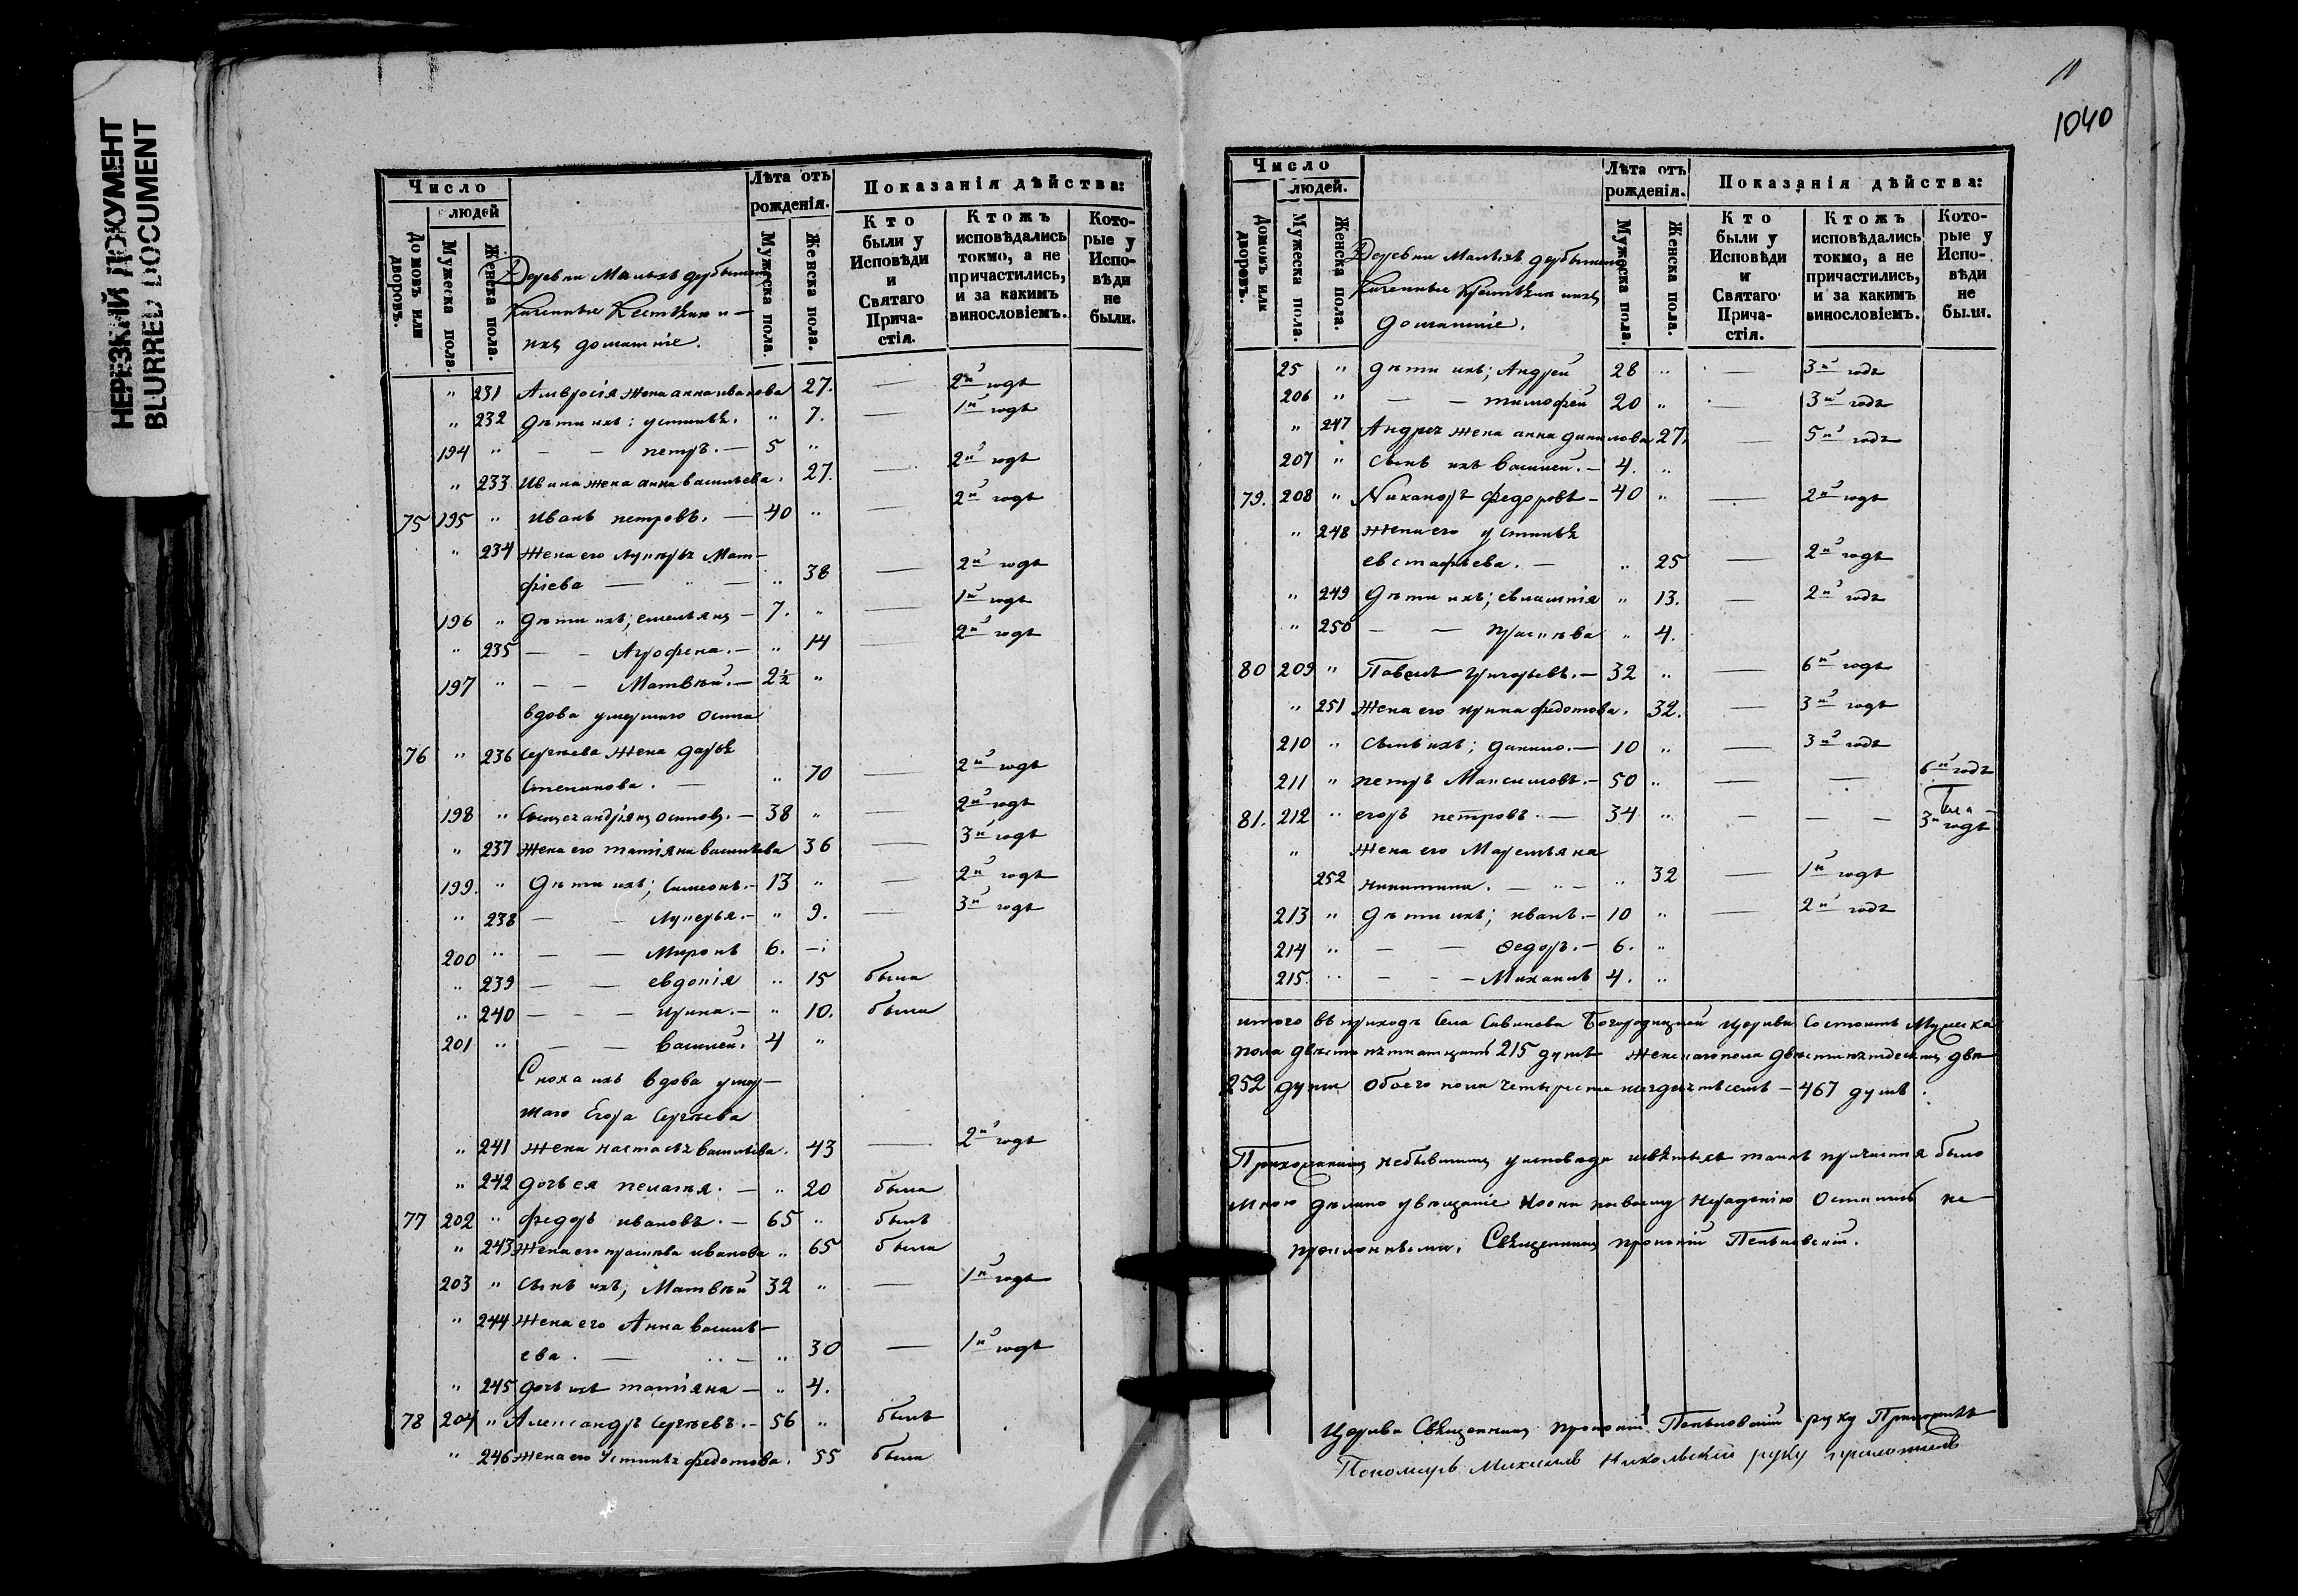 НЕРЕЗКИЙ ДОКУМЕНТ
BLURRED DOCUMENT
Число
людей
Домовъ или дворовъ.
Мужеска пола.
Женска пола.
Деревни Малыхъ
их домашніе.
Лѣта отъ рожденія.
Мужеска пола.
Женска пола.
Показанія дѣйства:
Кто были у Исповѣди и Святаго Прича-стія.
Ктожъ исповѣдались токмо, а не причастились, и за какимъ винословіемъ.
Кото-рые у Испо-вѣди не были.
" 231 Амвросія жена анна иванова 27. — 2й годъ
" 232 дѣти ихъ: " 7. — 1й годъ
194 " — — петръ. — 5 "
" 233 Ивана жена анна васильева. 27. — 2й годъ
75 195 " Иванъ петровъ. — 40 " — 2й годъ
" 234 Жена его Мат-
фіева — " — " 38 — 2й годъ
196 " дѣти ихъ; емельянъ — 7. " — 1й годъ
" 235 — — Агрофена. — " 14 — 2й годъ
197 " — — Матвѣй. — 2½ "
вдова умершаго осипа
76 " 236 сергѣева жена дарья
Степанова. — " 70 — 2й годъ
198 " андріянъ осиповъ. — 38 " — 2й годъ
" 237 жена его татіяна васильева 36 — 3й годъ
199. " Дѣти ихъ; Симеонъ. — 13 " — 2й годъ
" 238 — — лукерья. — " 9. — 3й годъ
200 " — — Миронъ 6. —
" 239 — — евдокія " 15 была
" 240 — — ирина. — " 10. была
201 " — — василей. 4 "
Сноха ихъ вдова умер-
шаго Егора Сергѣева
" 241 жена настасья васильева. 43 — 2й годъ
" 242 дочь ея пелагия. — " 20 была
77 202 " федоръ ивановъ. — 65 " былъ
" 243 жена его прасковья иванова " 65 была
203 " сынъ ихъ; Матвѣй 32 " — 1й годъ
" 244 жена его Анна василь-
ева. — " — " 30 — 1й годъ
" 245 дочь ихъ татіяна — " 4.
78 204 " Александръ Сергѣевъ. — 56 " былъ
" 246 жена его Устинья федотова. 55 была
11
1040
Число
людей.
Домовъ или дворовъ.
Мужеска пола.
Женска пола.
Деревни Малыхъ
домашніе.
Лѣта отъ рожденія.
Мужеска пола.
Женска пола.
Показанія дѣйства:
Кто были у Исповѣди и Святаго Прича-стія.
Ктожъ исповѣдались токмо, а не причастились, и за какимъ винословіемъ.
Кото-рые у Испо-вѣди не были.
25 " дѣти ихъ; Андрей 28 " — 3й годъ
206 " — — тимофей 20 " — 3й годъ
" 247 Андрея жена анна данилова 27. — 5й годъ
207 " сынъ ихъ василей. — 4. "
79. 208 " Никаноръ федоровъ — 40 " — 2й годъ
" 248 жена его устинья
евстафьева. — " 25 — 2й годъ
" 249 Дѣти ихъ; " 13. — 2й годъ
" 250 — — " 4.
80 209 " Павелъ григорьевъ. — 32 " — 6й годъ
" 251 жена его ирина федотова. 32. — 3й годъ
210 " сынъ ихъ; данило. — 10 " — 3й годъ
211 " петръ Максимовъ. — 50 " — — 6й годъ
81. 212 " егоръ петровъ. — 34 " — — — 3й годъ
" жена его Маремьяна
252 никитина. — " — " 32 — 1й годъ
213 " Дѣти ихъ; иванъ. — 10 " — 2й годъ
214 " — — Ѳедоръ. — 6. "
215. " — — — Михаилъ 4. "
итого въ приходѣ Села Савинова Богородицкой Церкви Состоитъ Мужеска
пола двѣсто пятнатцать 215 душъ женскаго пола двѣсти пятдесятъ двѣ
252 души Обоего пола четыреста шездѣятьсемь — 467 душъ.
Прихожаниямъ небывшимъ у исповѣди и святыхъ таинъ причастия было
мною дѣлано увѣщаніе но они по своему нераденію Остались не-
преклонными. Священникъ
Церкви Священникъ руку Приложилъ
Пономарь Михаилъ Никольскій руку приложилъ